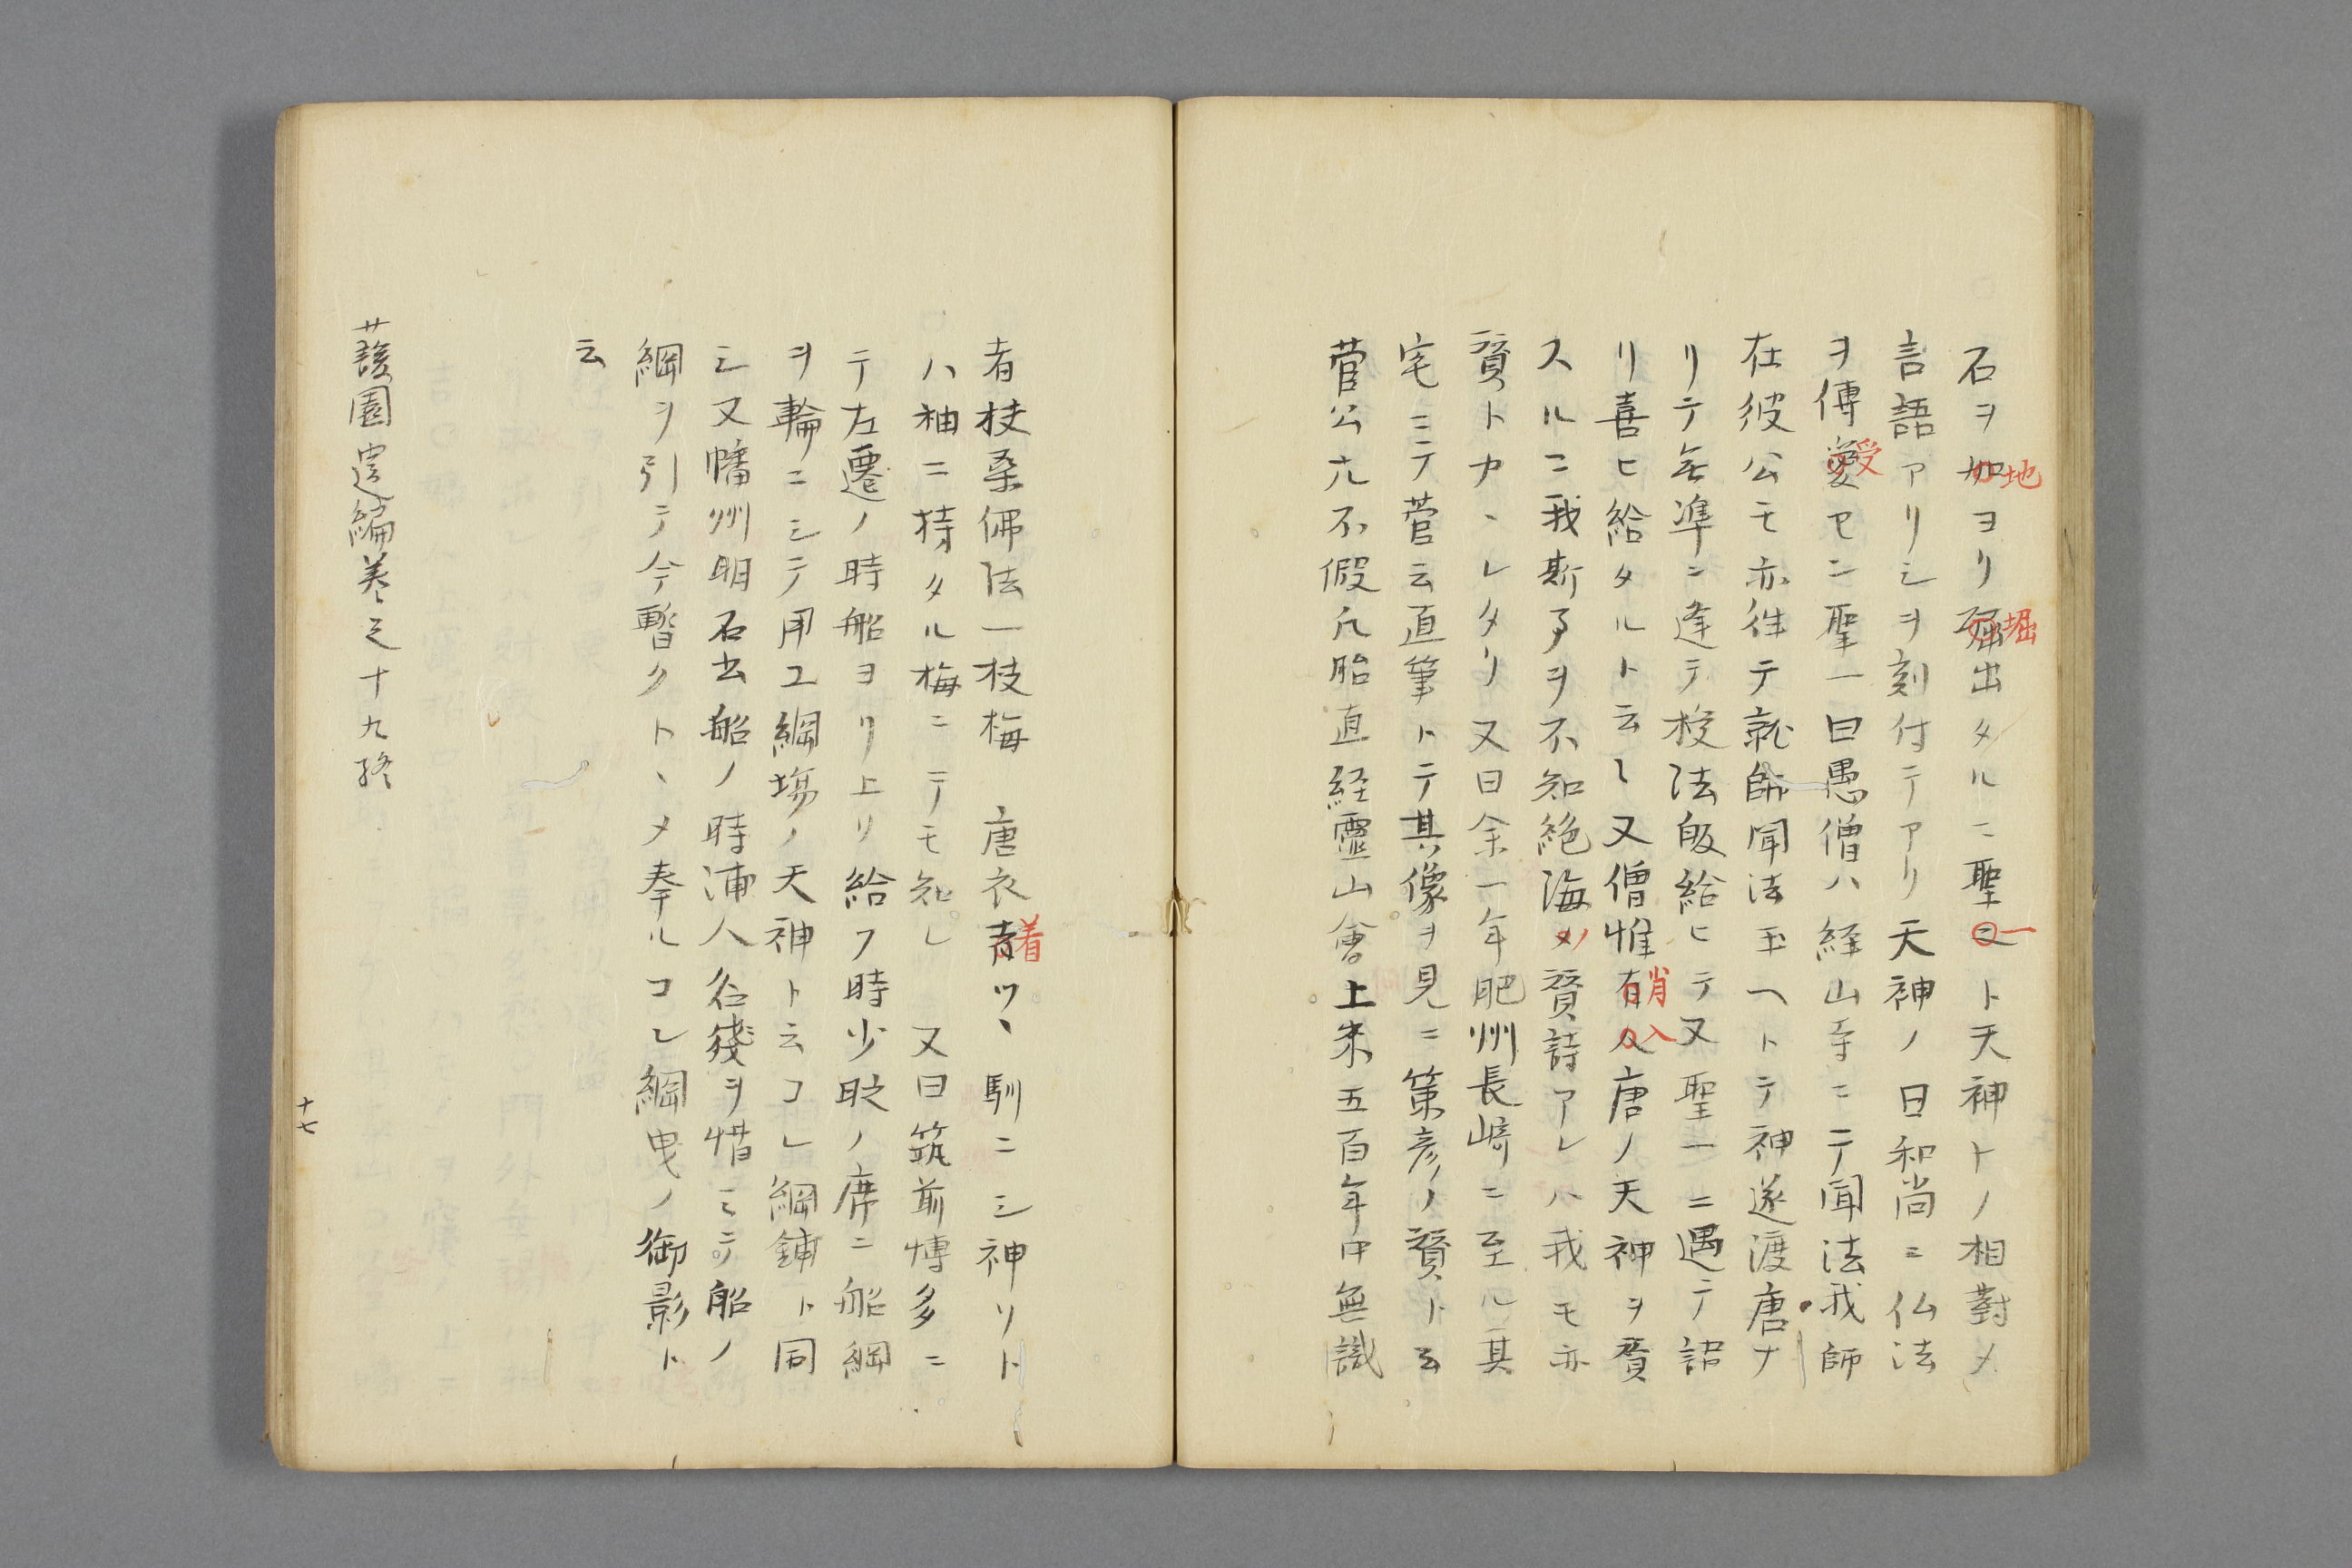 石ヲ加ヨリ䃕出タルニ聖又ト天神トノ相對メ
地
堀
一
言語アリシヲ刻付テアリ天神ノ曰和尚ニ仏法
ヲ傳愛セン聖一曰愚僧ハ経山寺ニテ聞法我師
受
在彼公モ亦徃テ就師聞法玉ヘトテ神遂渡唐ナ
リテ無準ニ逢テ授法皈給ヒテ又聖一ニ遇テ語
リ喜ヒ給タルト云々又僧惟有人唐ノ天神ヲ賛
肖
入
スルニ我斯ヿヲ不知絶海ノ賛詩アレハ我モ亦
賛トカヽレタリ又曰余一年肥州長﨑ニ至ル其
宅ニテ菅云直筆トテ其像ヲ見ニ策彦ノ賛ト云
菅公尤不假凡胎直経霊山會上来五百年中無識
者扶桑佛法一枝梅 唐衣着ツヽ馴ニシ神ソト
着
ハ袖ニ持タル梅ニテモ知レ 又曰筑前博多ニ
テ左遷ノ時船ヨリ上リ給フ時少貶ノ席ニ船綱
ヲ輪ニシテ用ユ綱塲ノ天神ト云コレ綱鋪ト同
シ又幡州明石去船ノ時浦人名殘ヲ惜ミテ船ノ
綱ヲ引テ今暫クトヽメ奉ルコレ綱曳ノ御影ト
云
蘐園遺編巻之十九終
十七